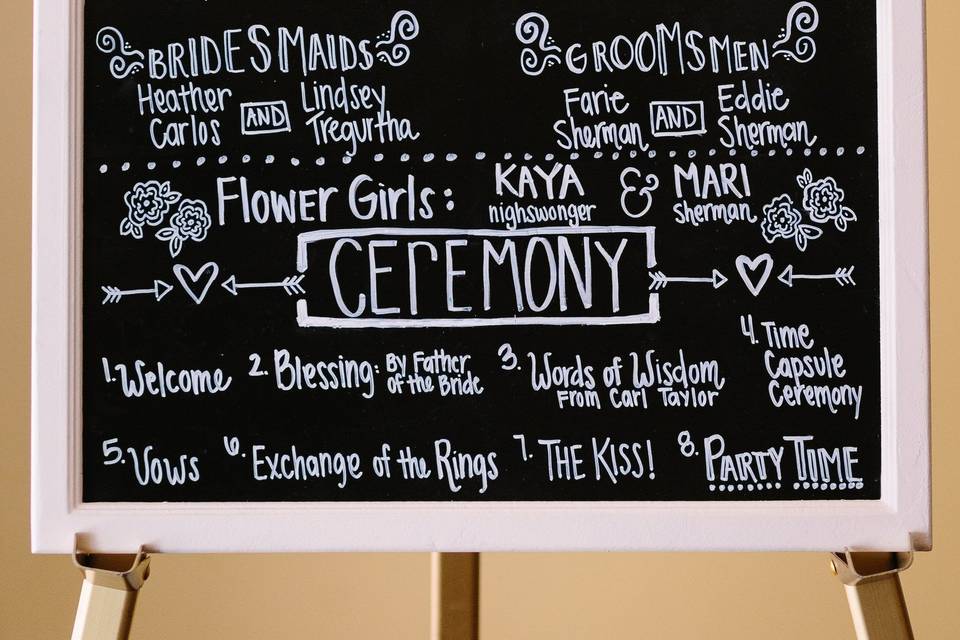 BRIDESMAIDS
Heather Carlos AND Lindsey Tregurtha
GROOMSMEN
Farie Sherman AND Eddie Sherman
Flower Girls: KAYA nighswonger & MARI Sherman
CEREMONY
1. Welcome
2. Blessing: By Father of the Bride
3. Words of Wisdom From Carl Taylor
4. Time Capsule Ceremony
5. Vows
6. Exchange of the Rings
7. THE KISS!
8. PARTY TIME